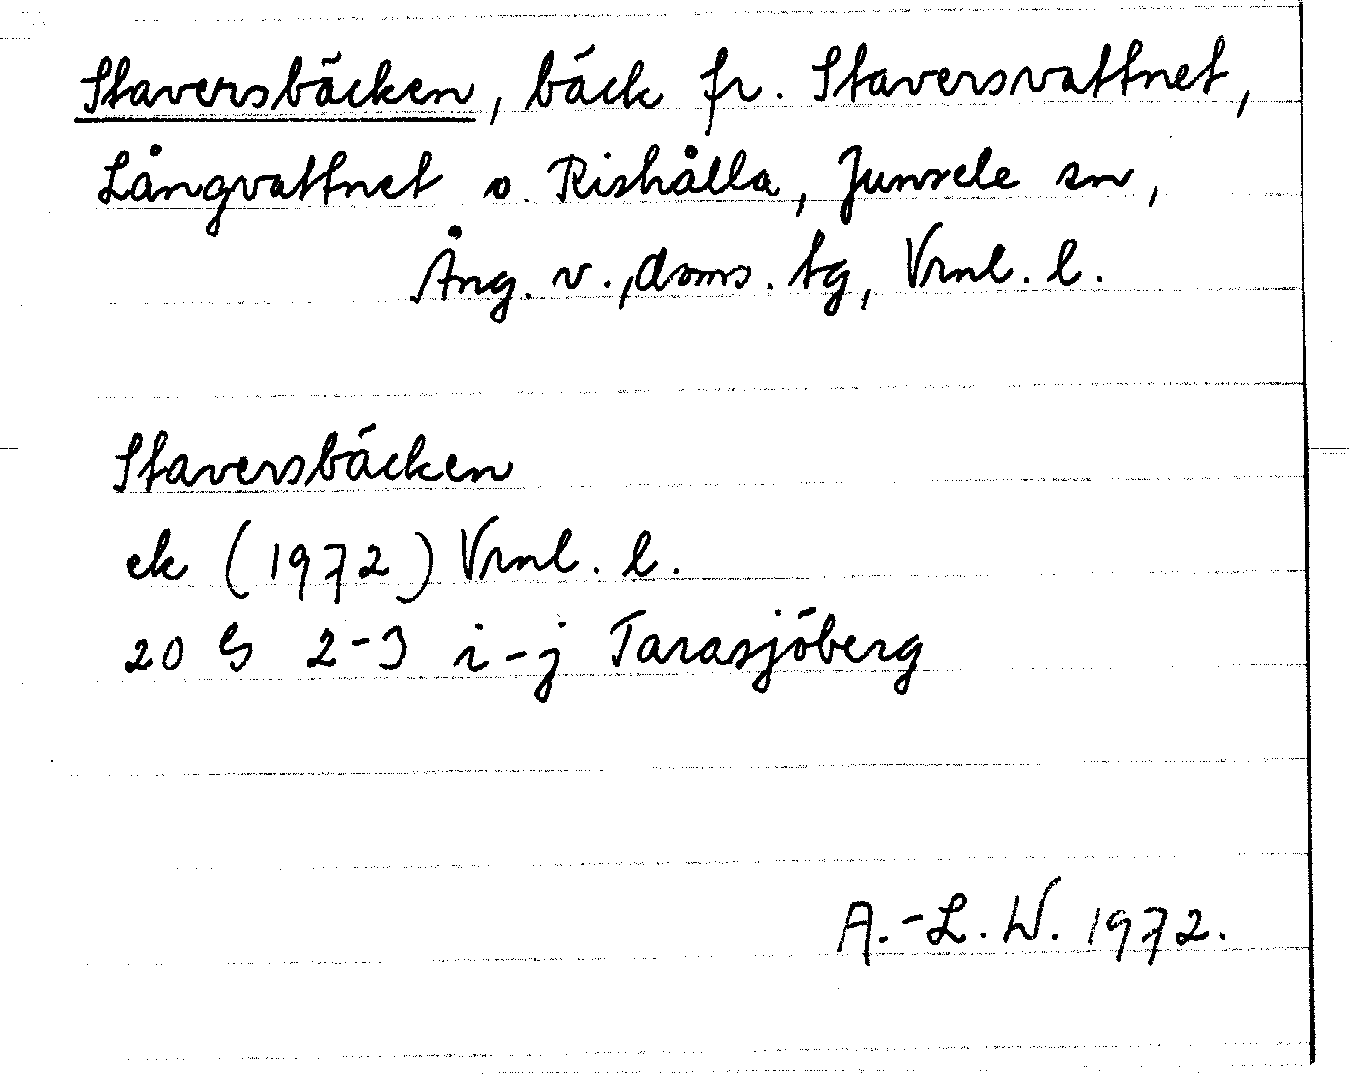 Staversbäcken, bäck fr. Staversvattnet,
Långvattnet o. Rishålla, Junsele sn,
Ång. v., doms. tg, Vrnl. l.
Staversbäcken
ek (1972) Vrnl. l.
20 G 2-3 i-j Tarasjöberg
A.-L. W. 1972.